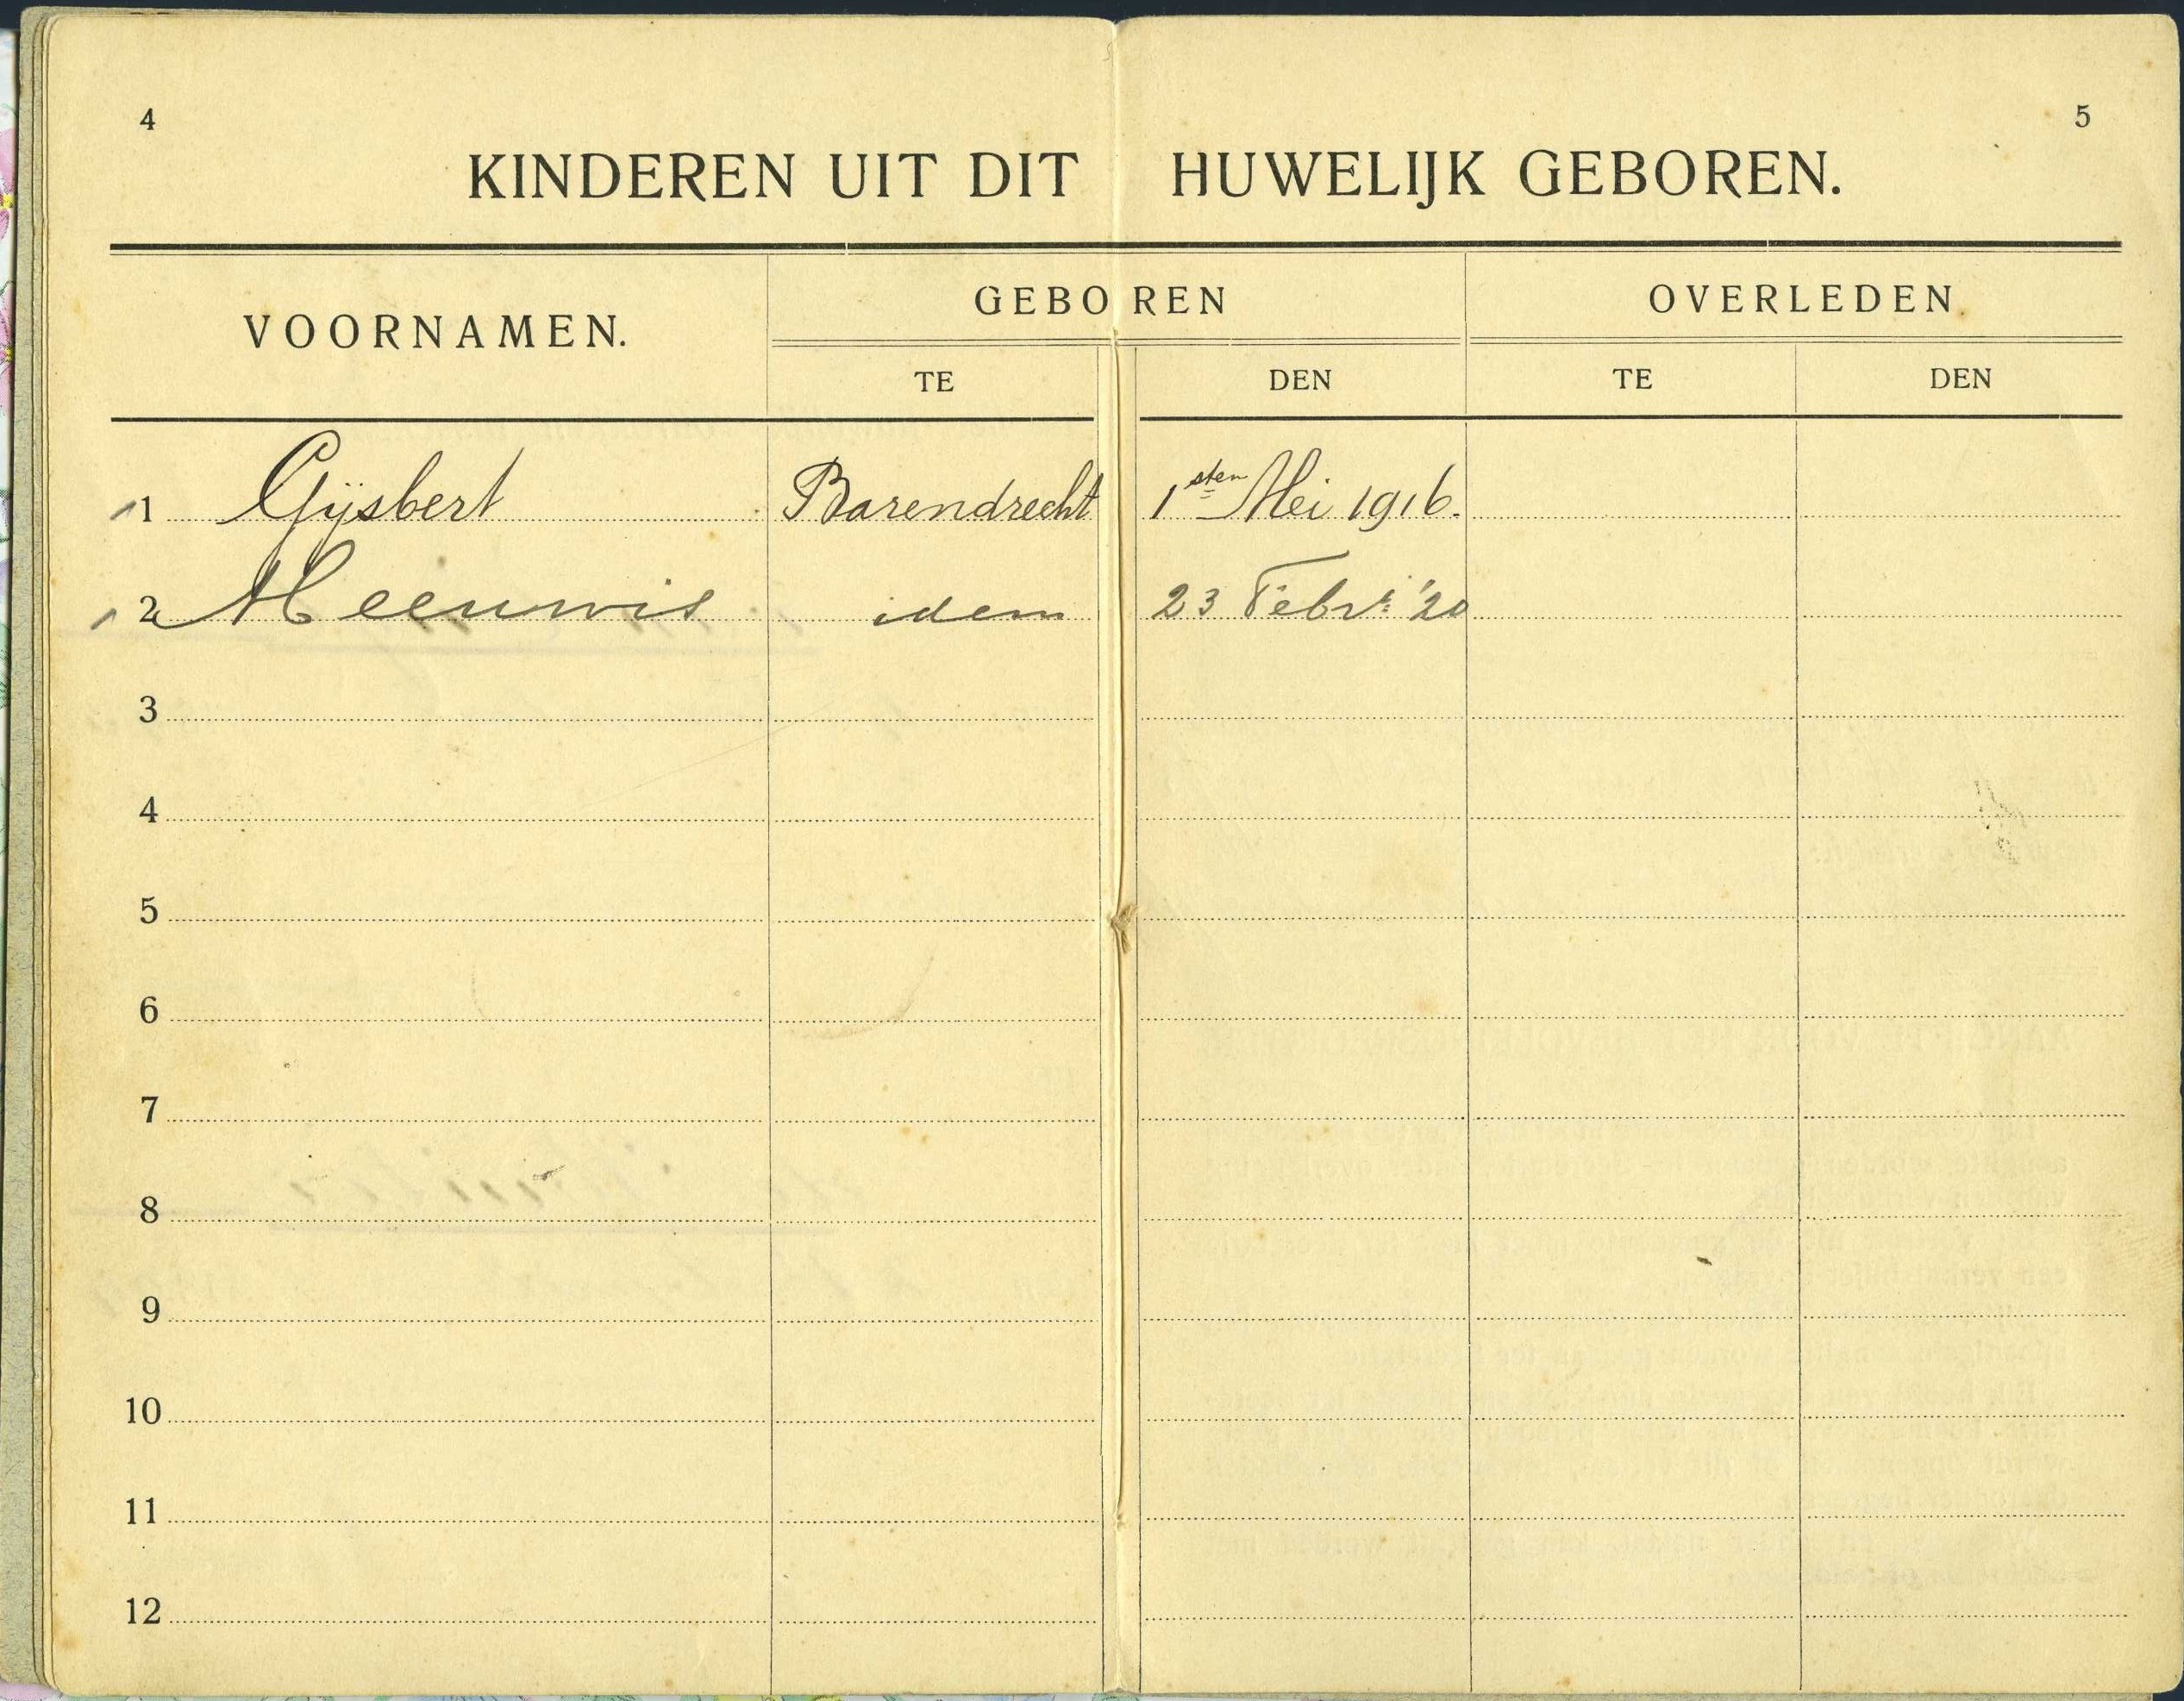 4
5
KINDEREN UIT DIT HUWELIJK GEBOREN.
VOORNAMEN.
GEBOREN
OVERLEDEN
TE
DEN
TE
DEN
1 Gijsbert Barendrecht 1sten Mei 1916.
2 Meeuwis idem 23 Febri '20
3
4
5
6
7
8
9
10
11
12